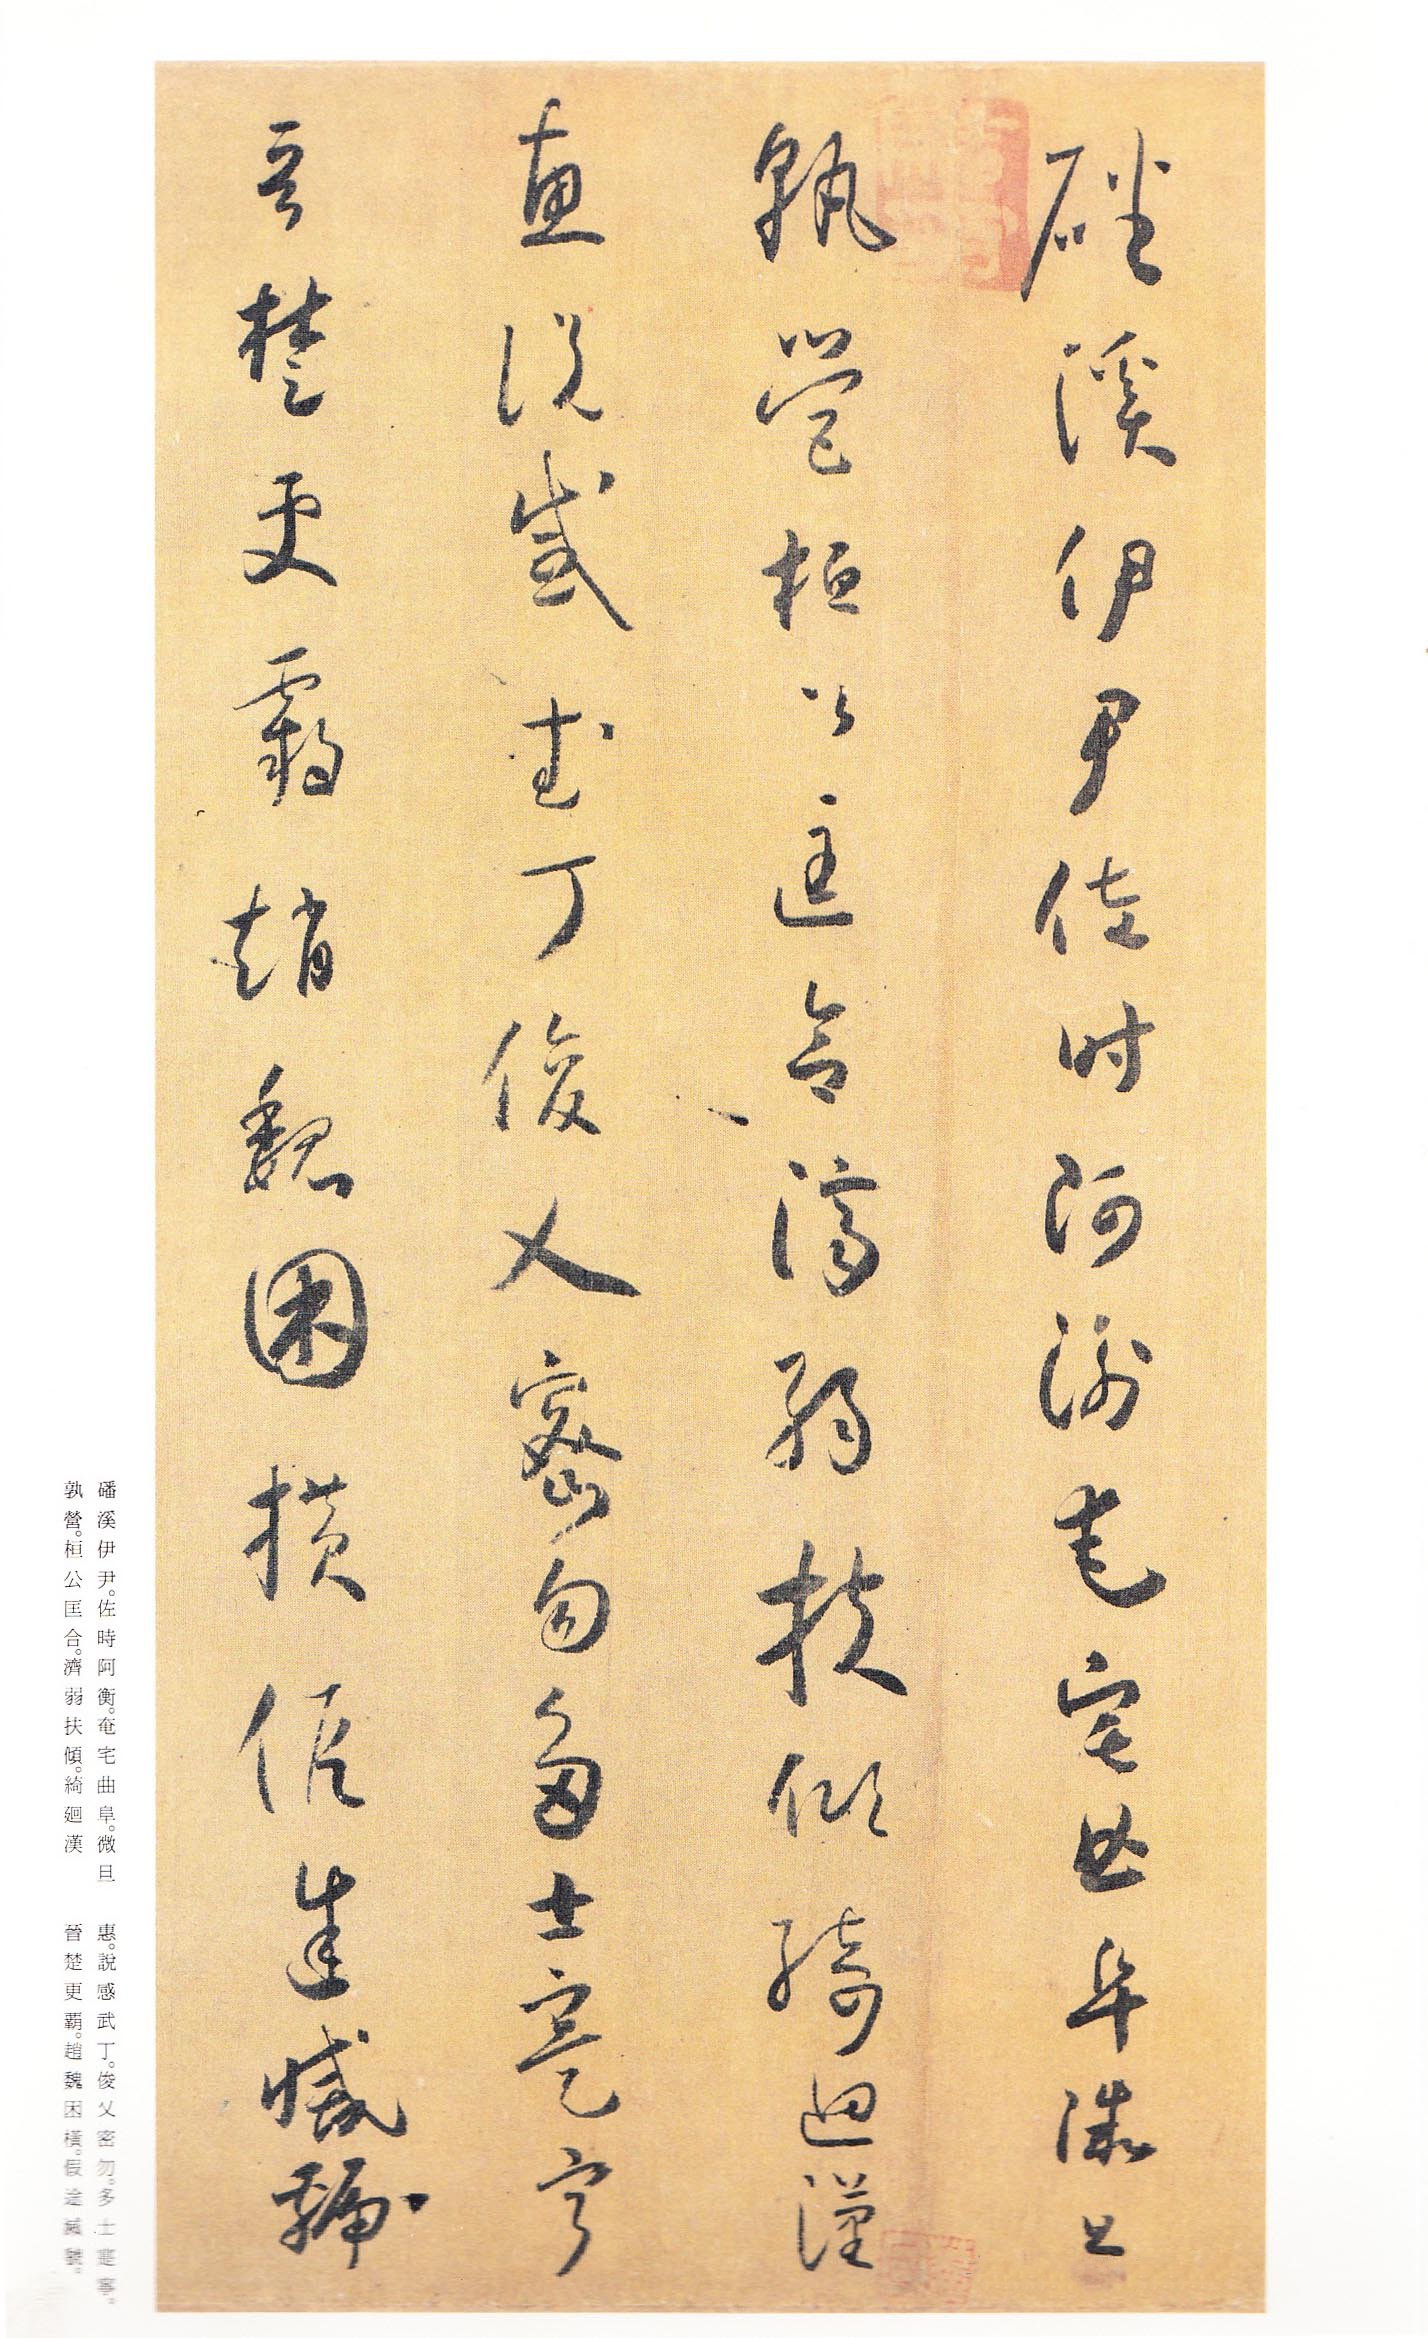 磻溪伊尹佐時阿衡奄宅曲阜微旦
孰營桓公匡合濟弱扶傾綺迴漢
惠說感武丁俊乂密勿多士寔寧
晉楚更霸趙魏困橫假途滅虢
磻溪伊尹。佐時阿衡。奄宅曲阜。微旦
孰營。桓公匡合。濟弱扶傾。綺廻漢
惠。說感武丁。俊乂密勿。多士寔寧。
晉楚更覇。趙魏困橫。假途滅虢。